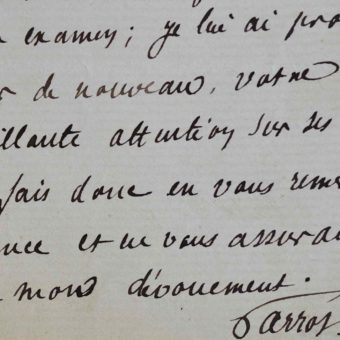 examen; je lui ai pro
de nouveau, votre
illante attention sur ses
fais donc en vous remer
nce et en vous assuran
mon dévouement.
Parrot